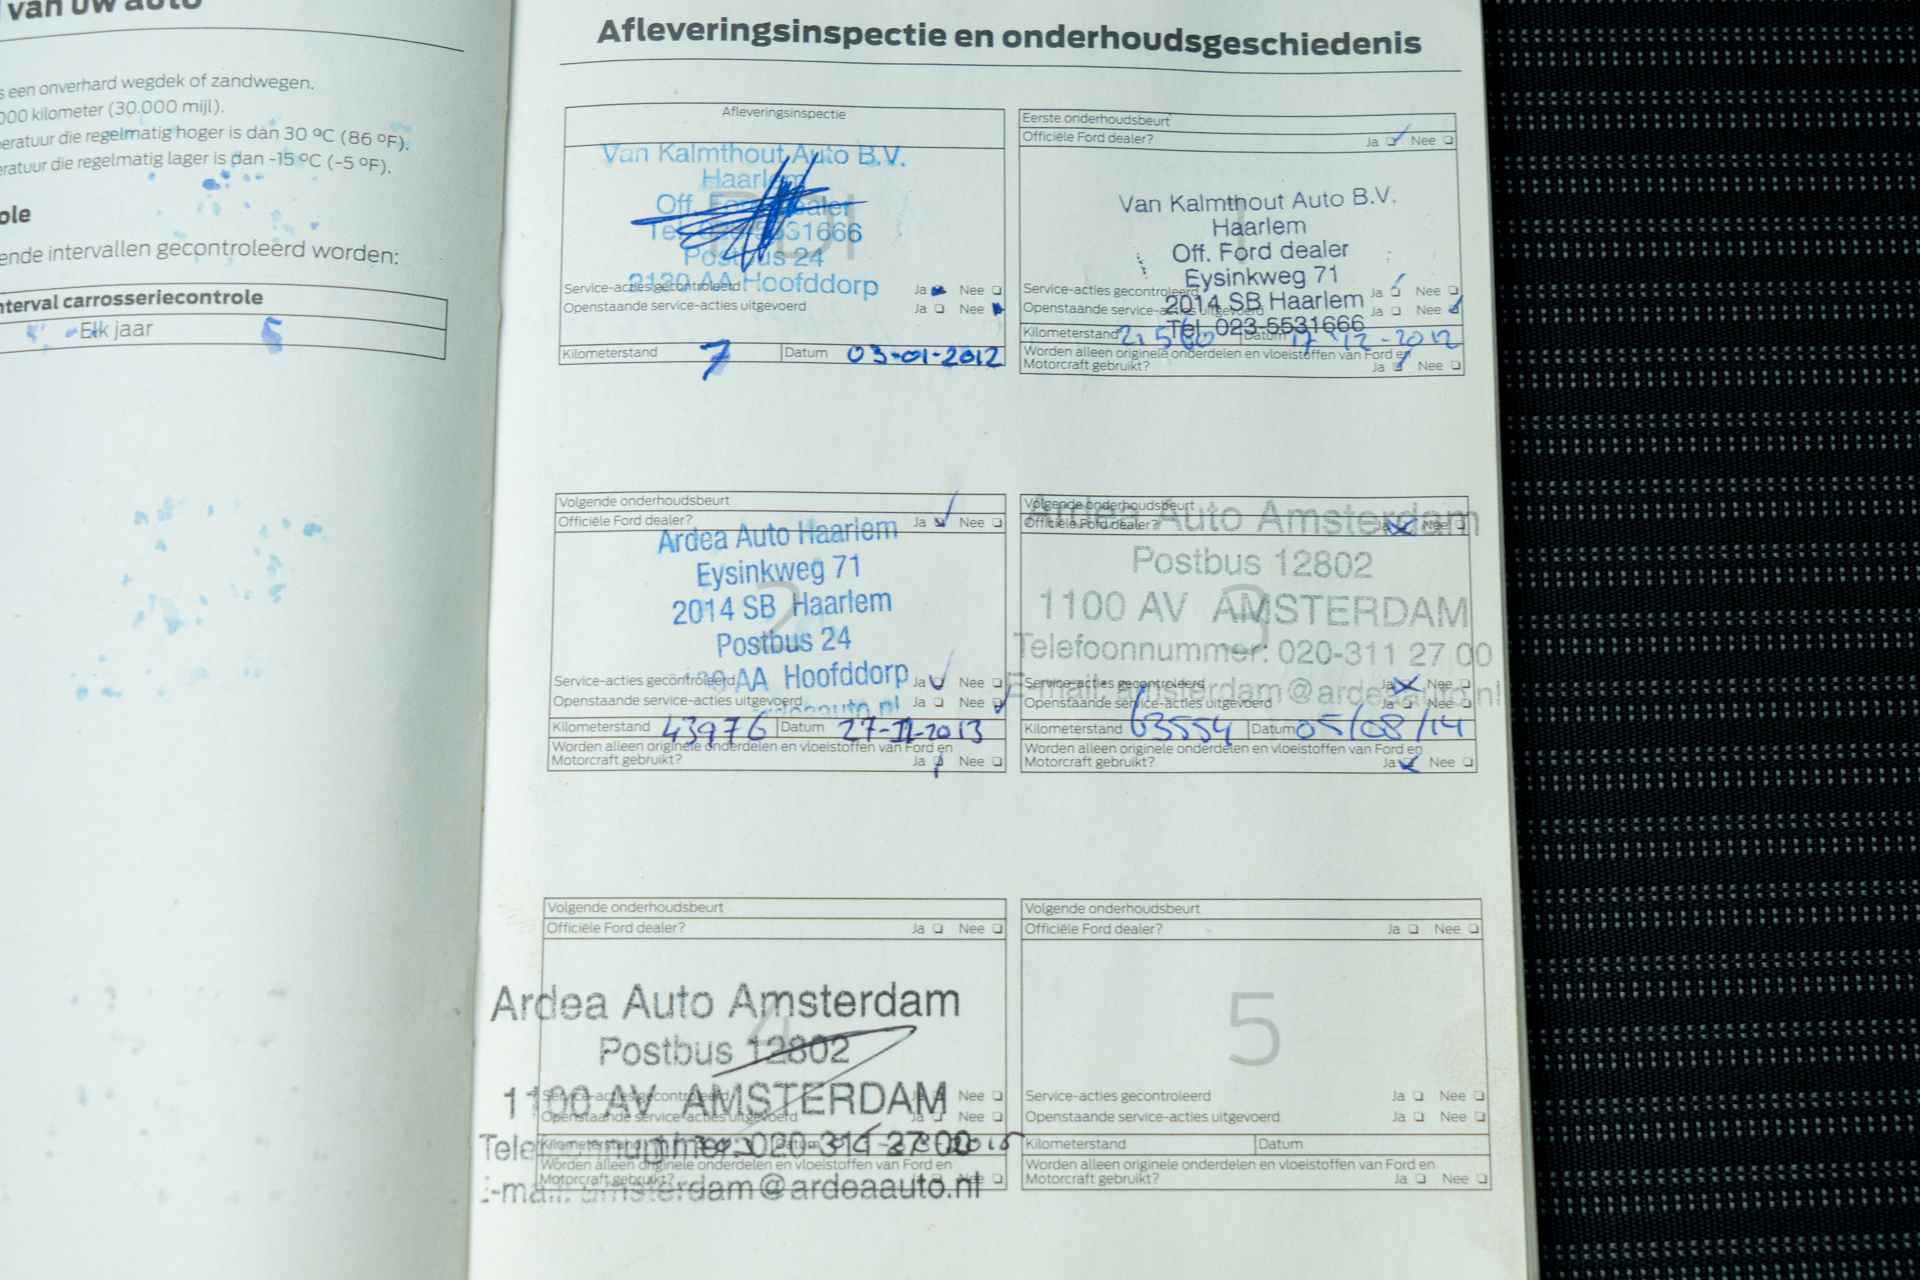 van uw auto
s een onverhard wegdek of zandwegen.
000 kilometer (30.000 mijl).
eratuur die regelmatig hoger is dan 30 °C (86 °F).
eratuur die regelmatig lager is dan -15 °C (-5 °F).
ole
ende intervallen gecontroleerd worden:
nterval carrosseriecontrole
Elk jaar
Afleveringsinspectie en onderhoudsgeschiedenis
Afleveringsinspectie
Van Kalmthout Auto B.V.
Haarlem
Off. Ford dealer
Tel. 023-5531666
Postbus 24
2130 AA Hoofddorp
Service-acties gecontroleerd Ja Nee
Openstaande service-acties uitgevoerd Ja Nee
Kilometerstand 7 Datum 03-01-2012
Eerste onderhoudsbeurt
Officiële Ford dealer? Ja Nee
1
Van Kalmthout Auto B.V.
Haarlem
Off. Ford dealer
Eysinkweg 71
2014 SB Haarlem
Tel. 023-5531666
Service-acties gecontroleerd Ja Nee
Openstaande service-acties uitgevoerd Ja Nee
Kilometerstand Datum 17-12-2012
Worden alleen originele onderdelen en vloeistoffen van Ford en
Motorcraft gebruikt? Ja Nee
Volgende onderhoudsbeurt
Officiële Ford dealer? Ja Nee
2
Ardea Auto Haarlem
Eysinkweg 71
2014 SB Haarlem
Postbus 24
AA Hoofddorp
ardeaauto.nl
Service-acties gecontroleerd Ja Nee
Openstaande service-acties uitgevoerd Ja Nee
Kilometerstand 43976 Datum 27-11-2013
Worden alleen originele onderdelen en vloeistoffen van Ford en
Motorcraft gebruikt? Ja Nee
Volgende onderhoudsbeurt
Officiële Ford dealer? Ja Nee
3
Ardea Auto Amsterdam
Postbus 12802
1100 AV AMSTERDAM
Telefoonnummer: 020-311 27 00
E-mail: amsterdam@ardeaauto.nl
Service-acties gecontroleerd Ja Nee
Openstaande service-acties uitgevoerd Ja Nee
Kilometerstand 63554 Datum 05/08/14
Worden alleen originele onderdelen en vloeistoffen van Ford en
Motorcraft gebruikt? Ja Nee
Volgende onderhoudsbeurt
Officiële Ford dealer? Ja Nee
4
Ardea Auto Amsterdam
Postbus 12802
1100 AV AMSTERDAM
Telefoonnummer: 020-311 27 00
E-mail: amsterdam@ardeaauto.nl
Service-acties gecontroleerd Ja Nee
Openstaande service-acties uitgevoerd Ja Nee
Kilometerstand Datum
Worden alleen originele onderdelen en vloeistoffen van Ford en
Motorcraft gebruikt? Ja Nee
Volgende onderhoudsbeurt
Officiële Ford dealer? Ja Nee
5
Service-acties gecontroleerd Ja Nee
Openstaande service-acties uitgevoerd Ja Nee
Kilometerstand Datum
Worden alleen originele onderdelen en vloeistoffen van Ford en
Motorcraft gebruikt? Ja Nee